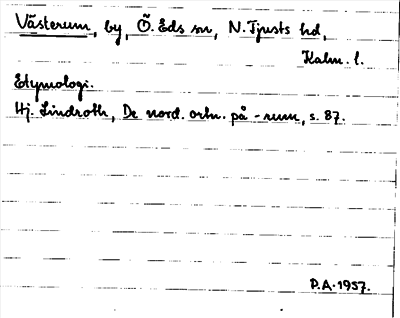 Västerum, by, Ö. Eds sn, N. Tjusts hd,
Kalm. l.
Etymologi.
Hj. Lindroth, De nord. ortn. på -rum, s. 87.
P.A. 1957.